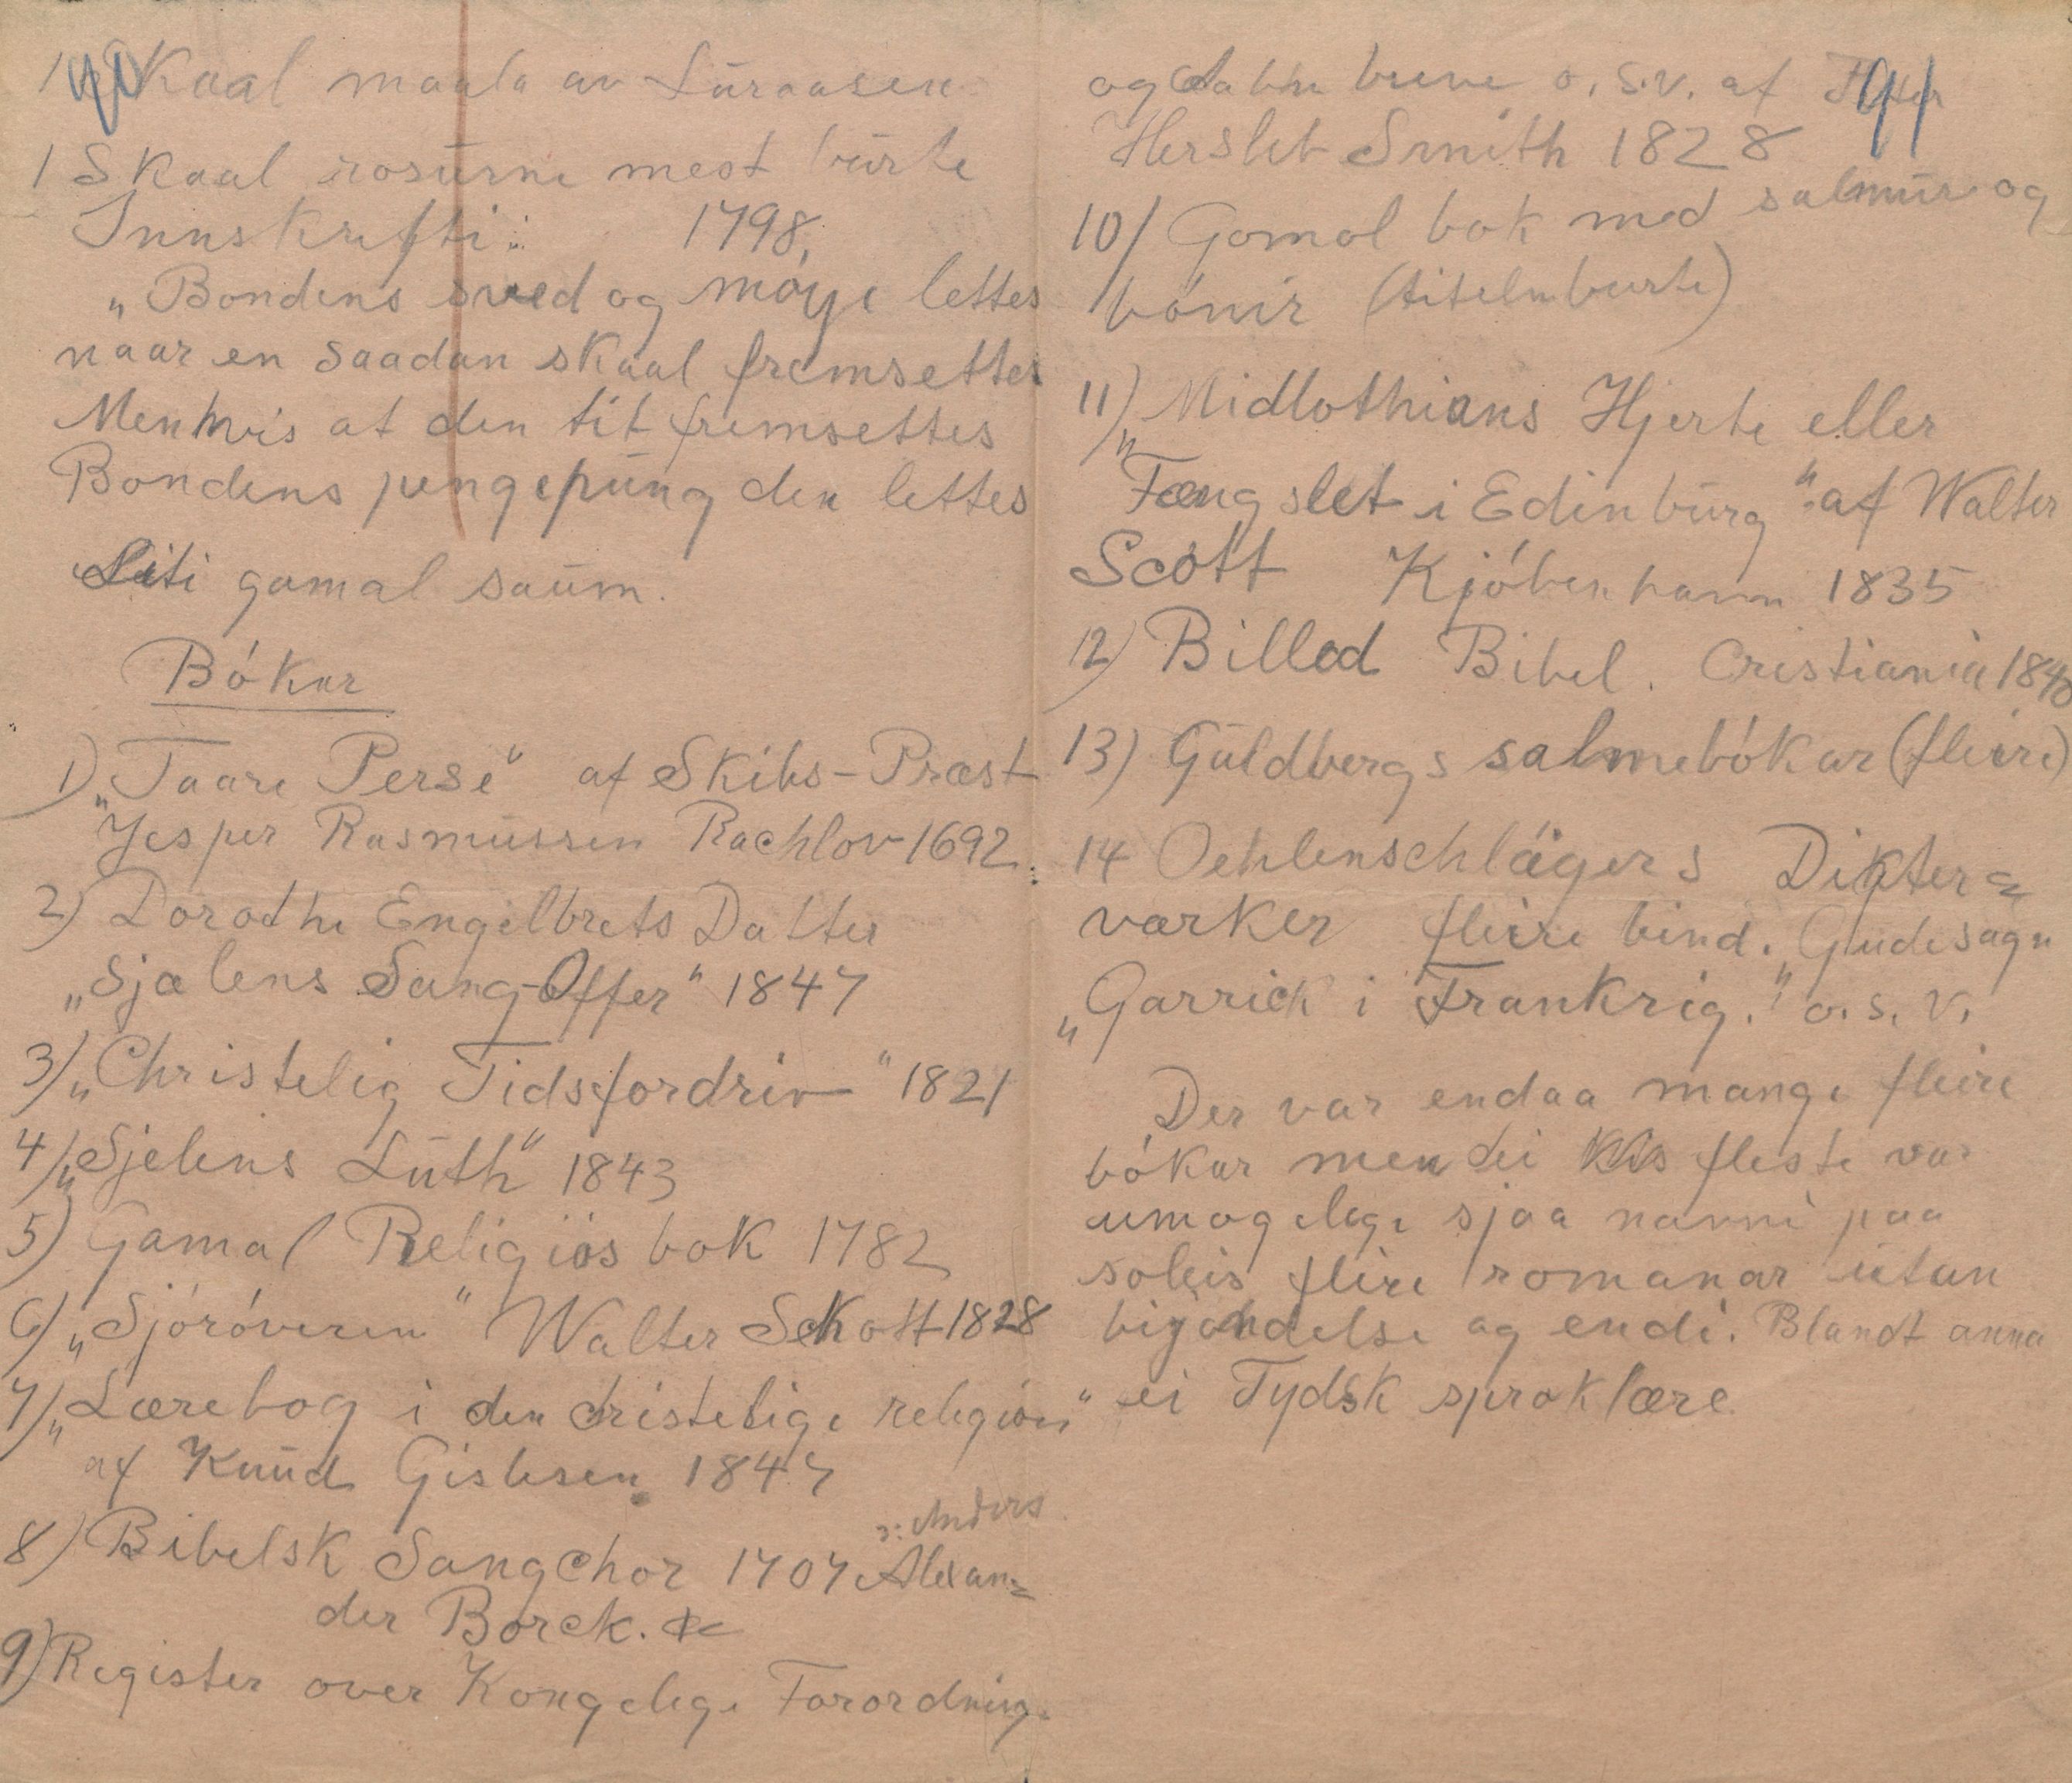 90
1 Skaal maala av Luraasen.
1 Skaal rosurne mest burte
Innskrifti: 1798,
"Bondens sved og møye lettes
naar en saadan skaal fremsettes
Men hvis at den tit fremsettes
Bondens pengepung den lettes
Liti gamal saum.
Bókar
1) "Taare Perse" af Skibs-Præst
Jesper Rasmussen Rachlov 1692.
2) Dorothe Engelbrets Datter
"Sjælens Sang-Offer" 1847
3) "Christelig Tidsfordriv" 1821
4) "Sjelens Luth" 1843
5) Gamal Religiös bok 1782
6) "Sjóróveren" Walter Schott 1828
7) "Lærebog i den cristelige religion"
af Knud Gislesen 1847
8) Bibelsk Sangchor 1707 Alexan=
ɔ: Anders
der Borck.
9) Register over Kongelige Forordning.
91
og aabne breve o.s.v. af
Hersleb Smith 1828
10) Gomol bok med salmur og
bónir (titeln burte)
11) Midlothians Hjerte eller
"Fængslet i Edinburg" af Walter
Scott Kjóbenhavn 1835
12) Billed Bibel. Cristiania 1840
13) Guldbergs salmebókar (fleire)
14 Oehlenschlägers Dikter=
værker fleire bind. Gudesagn
"Garrick i Frankrig." o.s.v.
Der var endaa mange fleire
bókar men dei fleste var
umogelege sjaa namni paa
soleis fleire romanar utan
byjondelse og endi. Blandt anna
ei Tydsk sproklære.